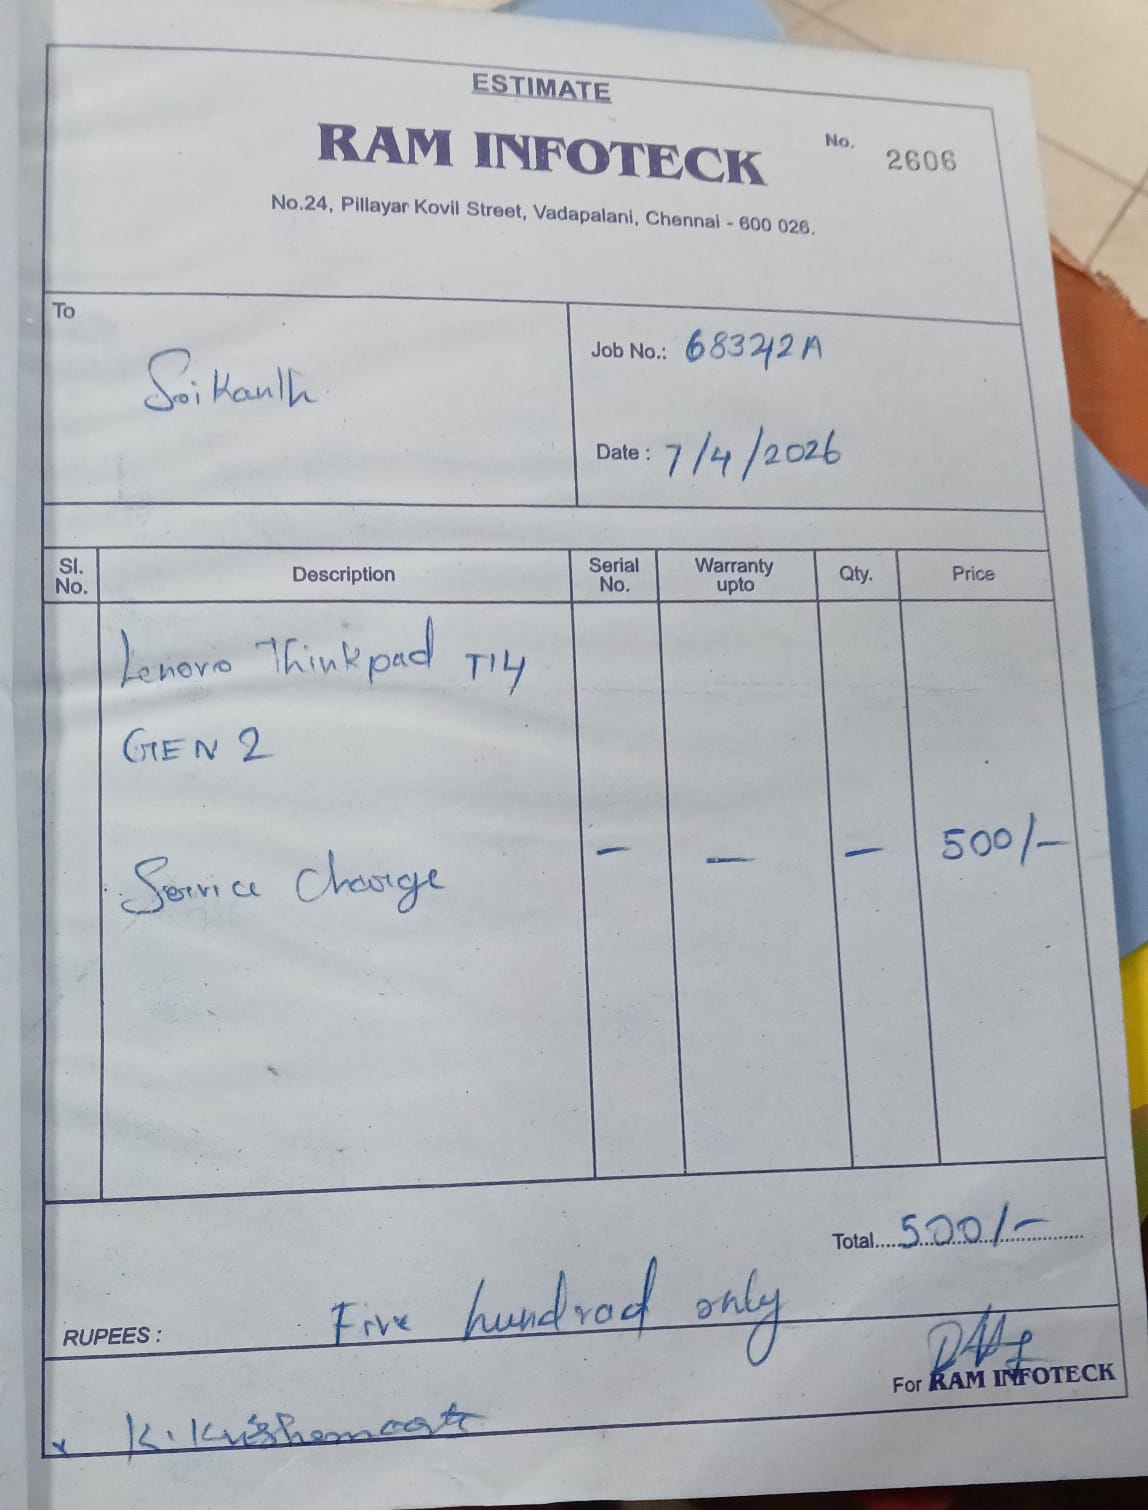 ESTIMATE
RAM INFOTECK
No. 2606
No.24, Pillayar Kovil Street, Vadapalani, Chennai - 600 026.
To
Srikanth
Job No.: 68342A
Date : 7/4/2026
Sl. No. Description Serial No. Warranty upto Qty. Price
Lenovo Thinkpad T14
GEN 2
Service Charge - - - 500/-
Total.....500/-
RUPEES : Five hundrad only
For RAM INFOTECK
x K.